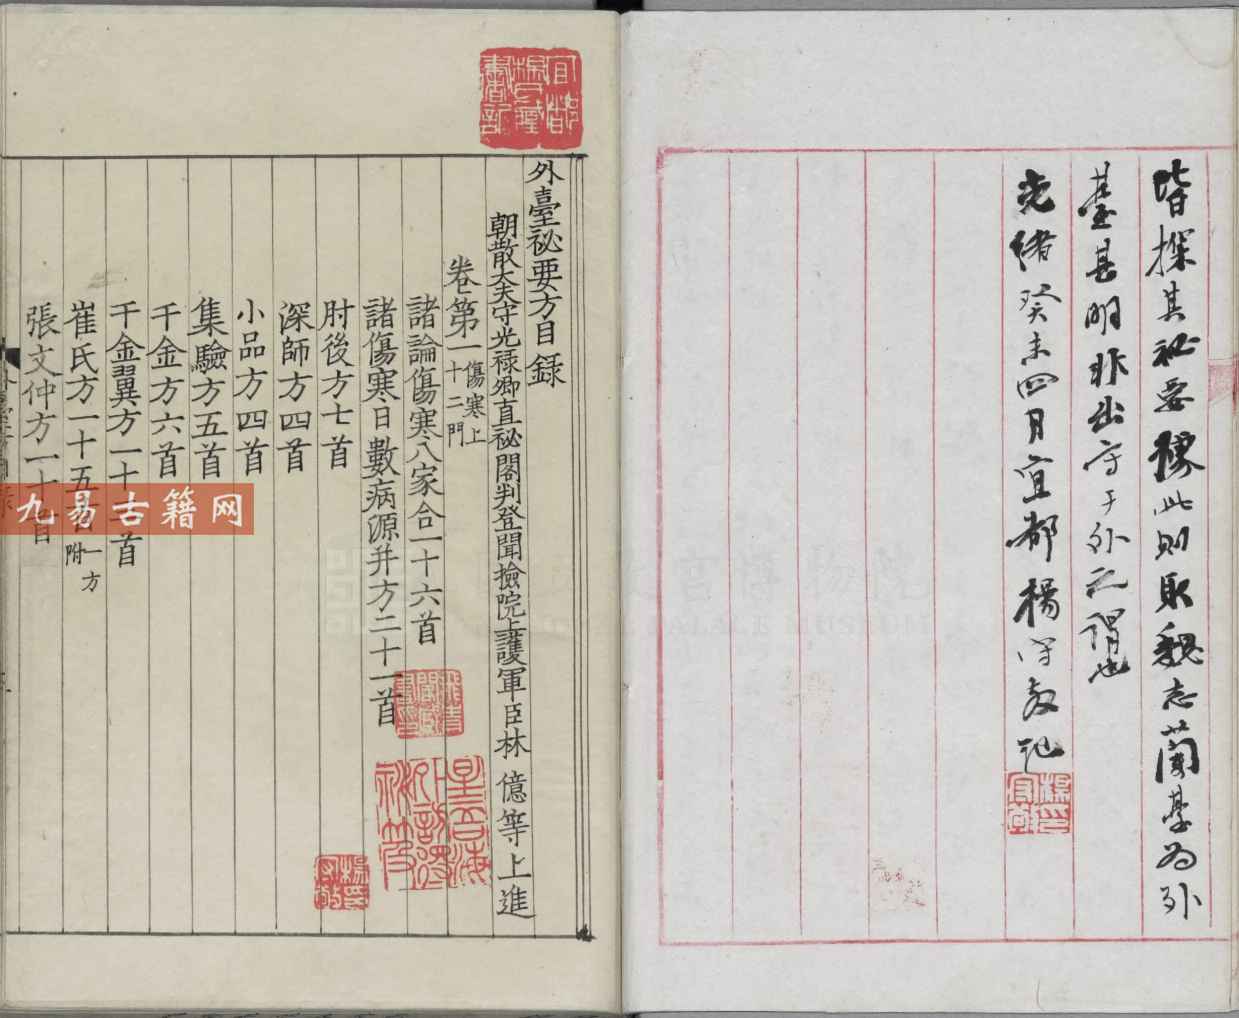 皆探其祕要穕此則取魏志蘭基為外
臺甚明非出守于外之謂也
光緒癸未四月宜都楊守敬記
外臺祕要方目錄
朝散大夫守光祿卿直祕閣判登聞撿院上護軍臣林 億等上進
卷第一 傷寒上 十二門
諸論傷寒八家合一十六首
諸傷寒日數病源并方二十一首
肘後方七首
深師方四首
小品方四首
集驗方五首
千金方六首
千金翼方一十首
崔氏方一十五首 附一方
張文仲方一十首
宜都楊氏藏書記
飛青閣藏書印
星吾海外訪得祕笈
楊守敬印
九易古籍网